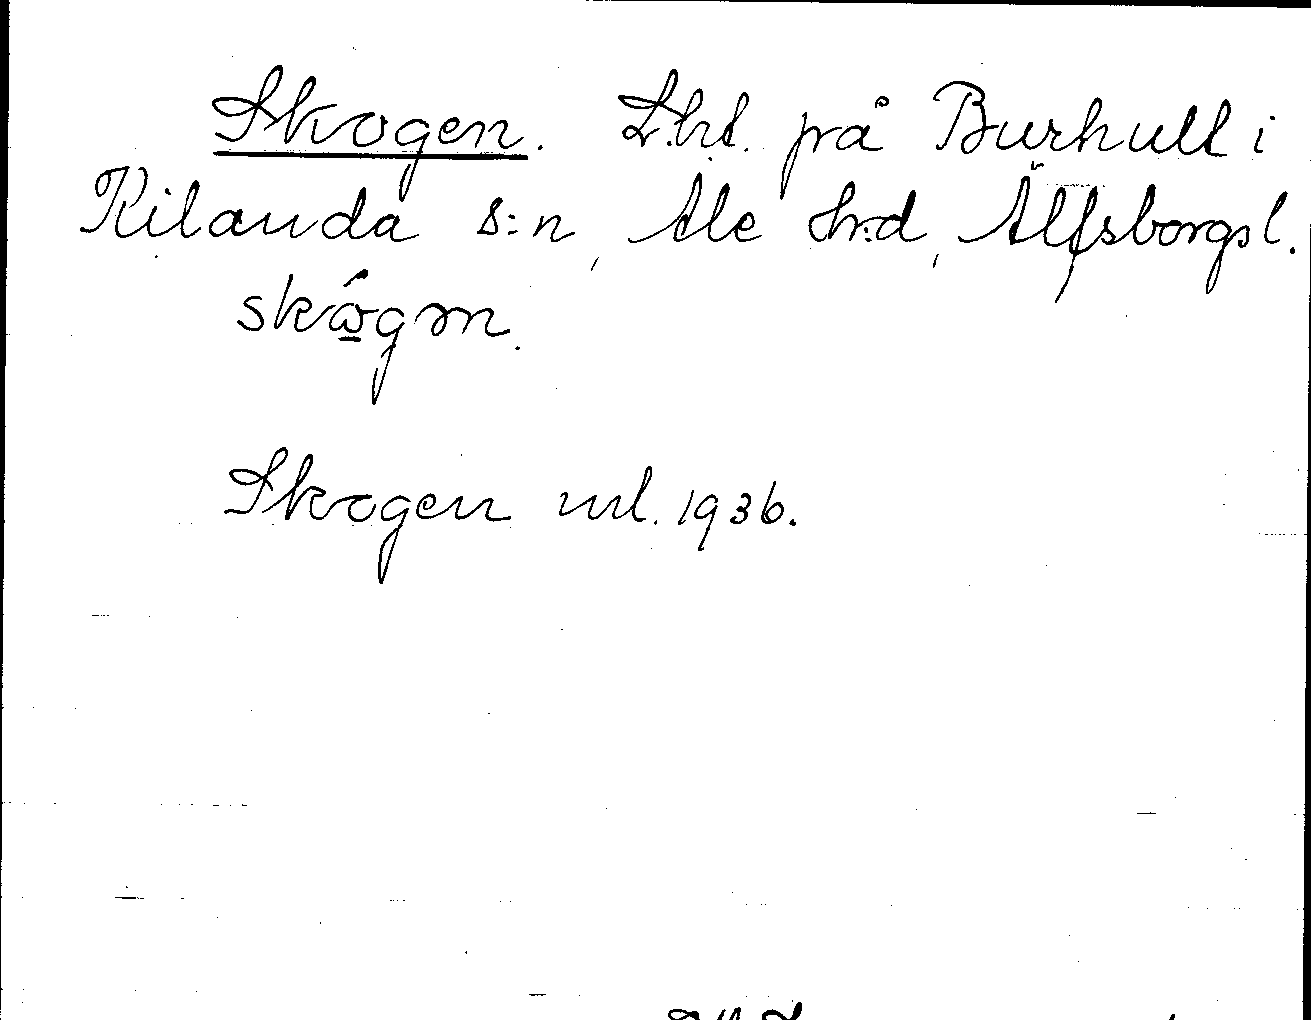 Skogen. Lht. på Burhult i
Kilanda s:n, Ale hrd, Älfsborgs l.
skógm.
Skogen ml. 1936.